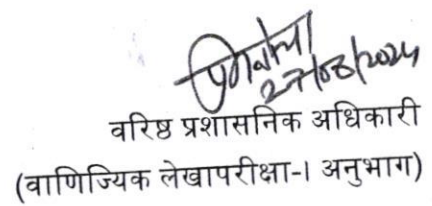 27/08/2024
वरिष्ठ प्रशासनिक अधिकारी
(वाणिज्यिक लेखापरीक्षा-I अनुभाग)